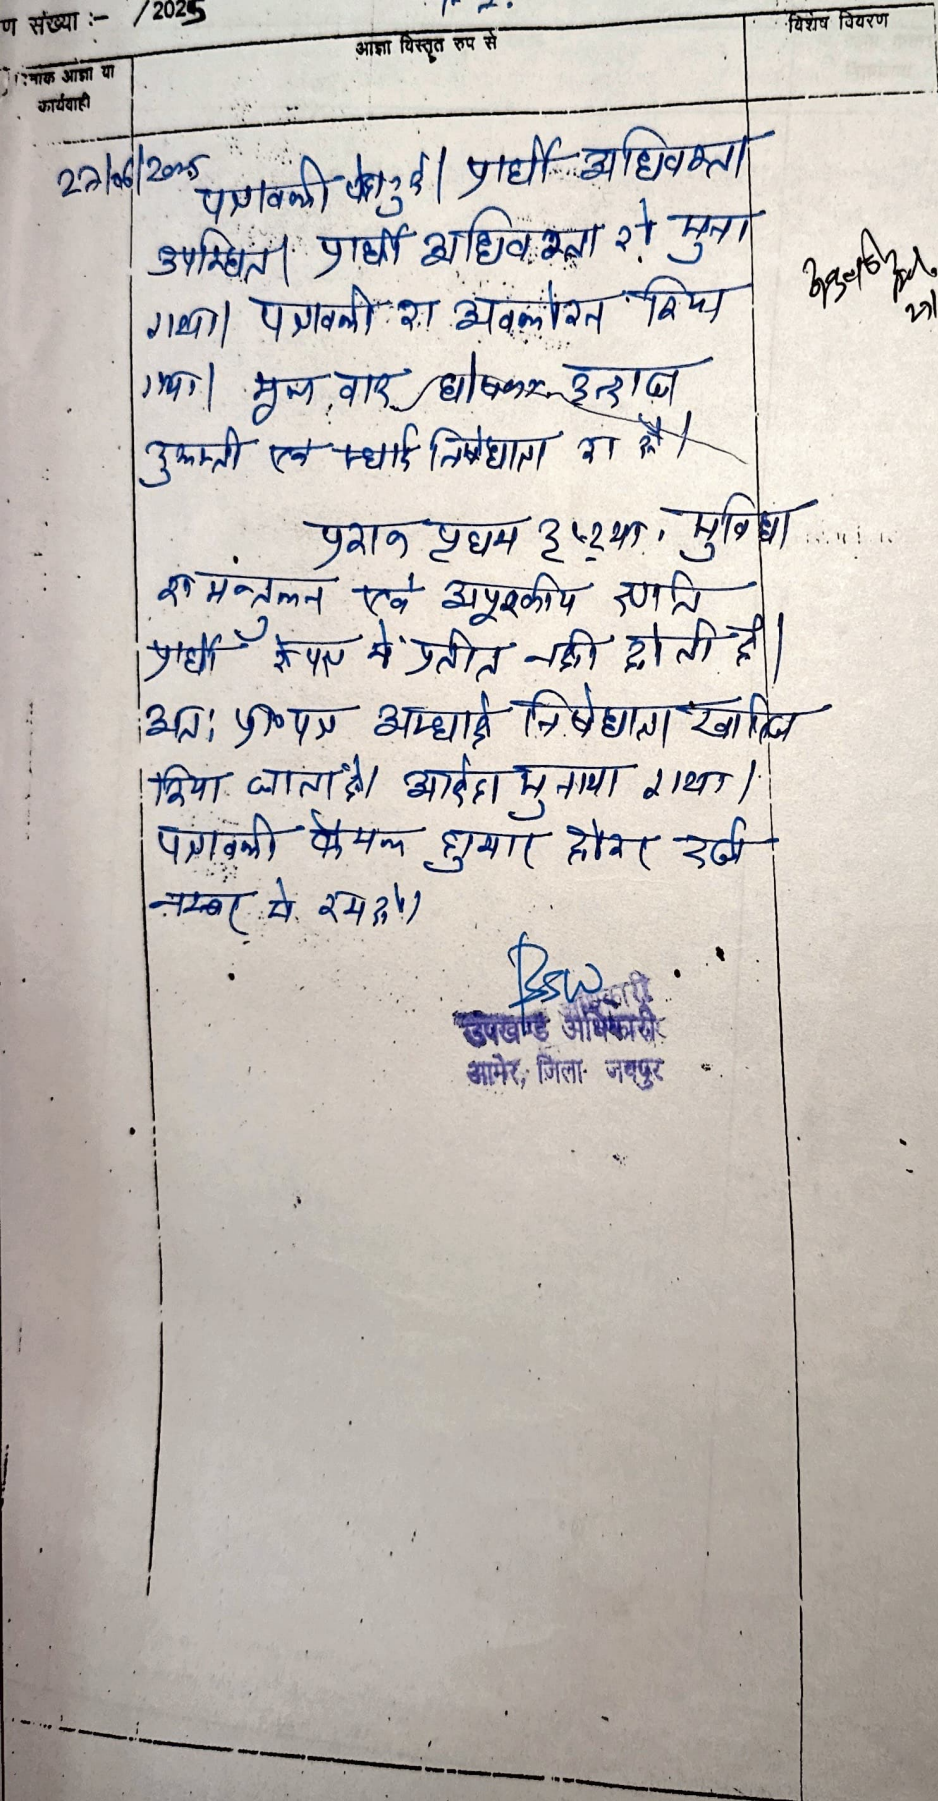 ण संख्या :- /2025
आज्ञा विस्तृत रुप से
विशेष विवरण
नाक आज्ञा या
कार्यवाही
27/06/2025
पत्रावली पेश हुई। प्रार्थी अधिवक्ता
उपस्थित। प्रार्थी अधिवक्ता को सुना
गया। पत्रावली का अवलोकन किया
गया। मूल वाद घोषणा इन्द्राज
दुरूस्ती एवं स्थाई निषेधाज्ञा का है।
प्रकरण प्रथम दृष्टया, सुविधा
का सन्तुलन एवं अपूरणीय क्षति
प्रार्थी के पक्ष में प्रतीत नहीं होती है।
अतः प्रा०पत्र अस्थाई निषेधाज्ञा खारिज
किया जाता है। आदेश सुनाया गया।
पत्रावली फैसल शुमार होकर दर्ज
नम्बर से कम हो।
उपखण्ड अधिकारी
आमेर, जिला जयपुर